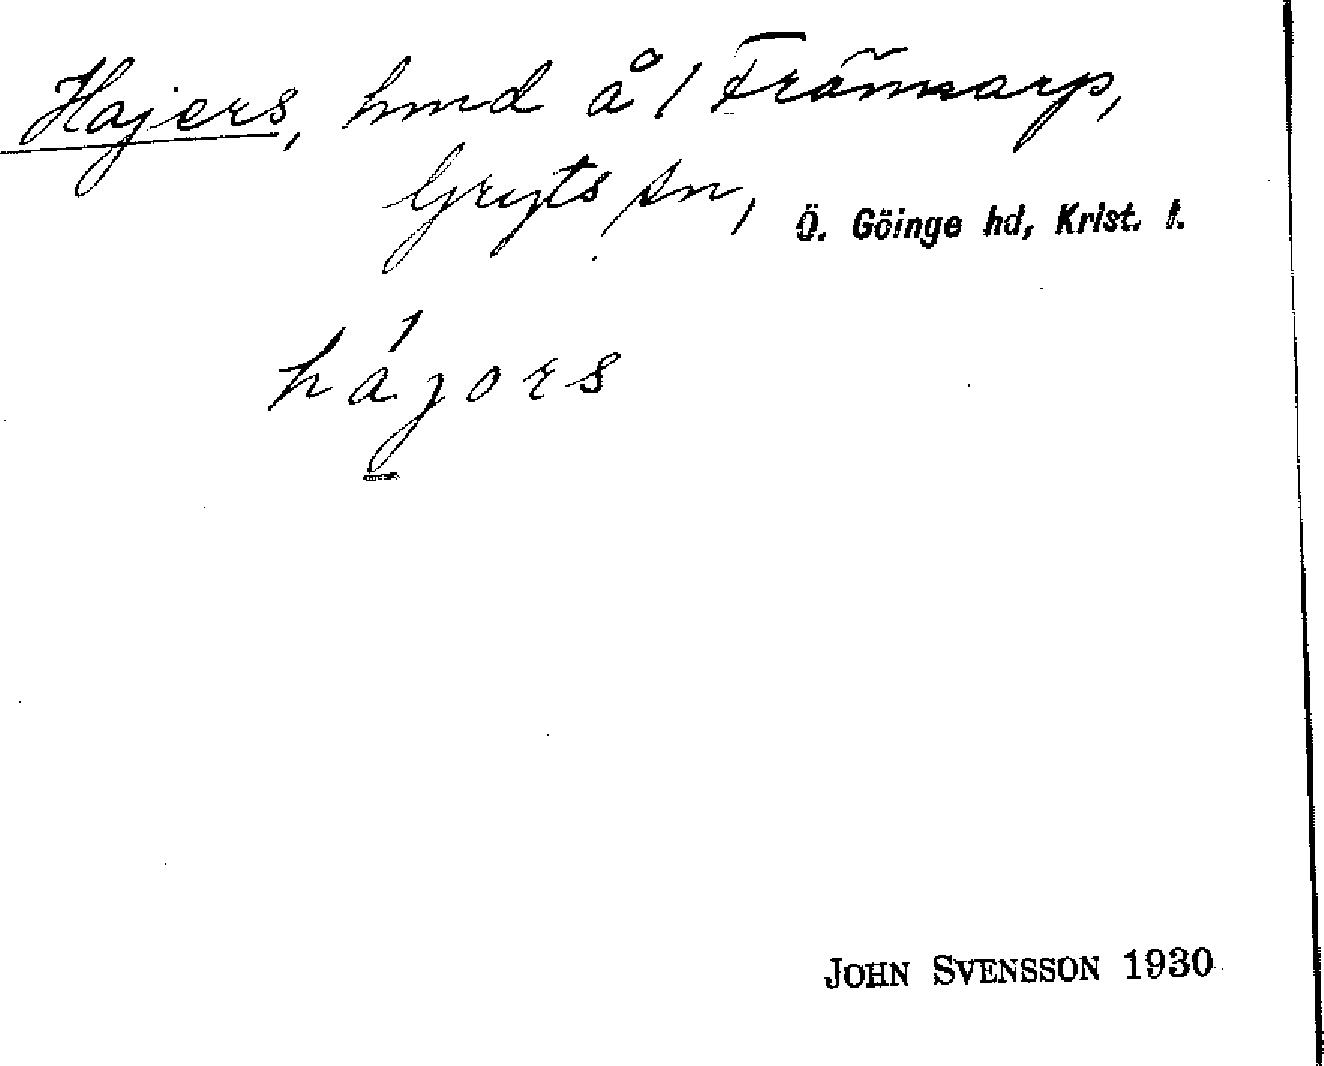 Hajers, hmd å 1 Frännarp,
Gryts sn, Ö. Göinge hd, Krist. l.
hájors
JOHN SVENSSON 1930